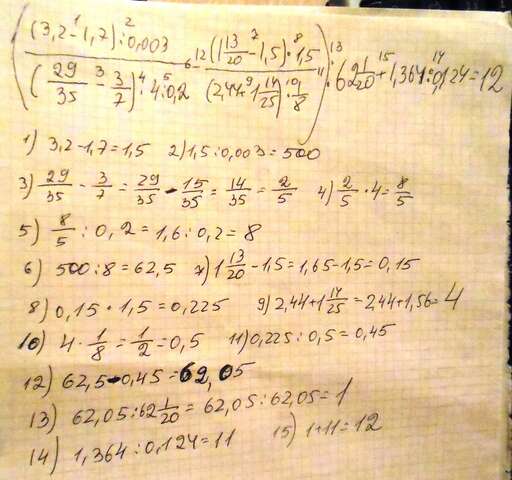 ((3,2-1,7):0,003 / (29/35 - 3/7)·4:0,2 - (1 13/20 - 1,5)·1,5 / (2,44+1 14/25)·1/8) : 62 1/20 + 1,364:0,124=12
1) 3,2-1,7=1,5 2) 1,5:0,003=500
3) 29/35 - 3/7 = 29/35 - 15/35 = 14/35 = 2/5 4) 2/5 · 4 = 8/5
5) 8/5 : 0,2 = 1,6:0,2=8
6) 500:8=62,5 7) 1 13/20 - 1,5=1,65-1,5=0,15
8) 0,15·1,5=0,225 9) 2,44+1 14/25=2,44+1,56=4
10) 4·1/8=1/2=0,5 11) 0,225:0,5=0,45
12) 62,5-0,45=62,05
13) 62,05:62 1/20=62,05:62,05=1
14) 1,364:0,124=11 15) 1+11=12